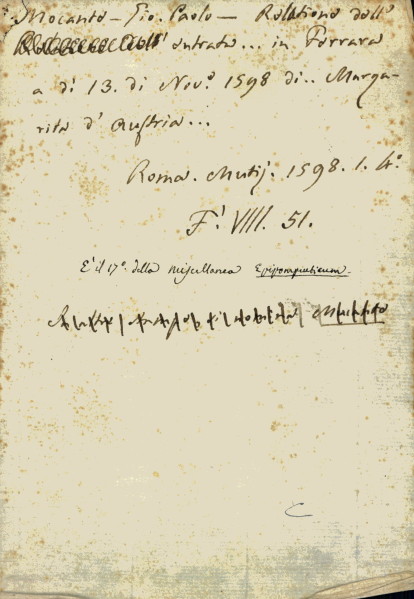 Mocante - Gio. Paolo - Relatione dell'
entrata... in Ferrara
a dì 13. di Nov.e 1598 di.. Marga-
rita d' Austria...
Roma. Mutij. 1598. 1. 4.o
F! VIII. 51.
E' il 17.o della miscellanea